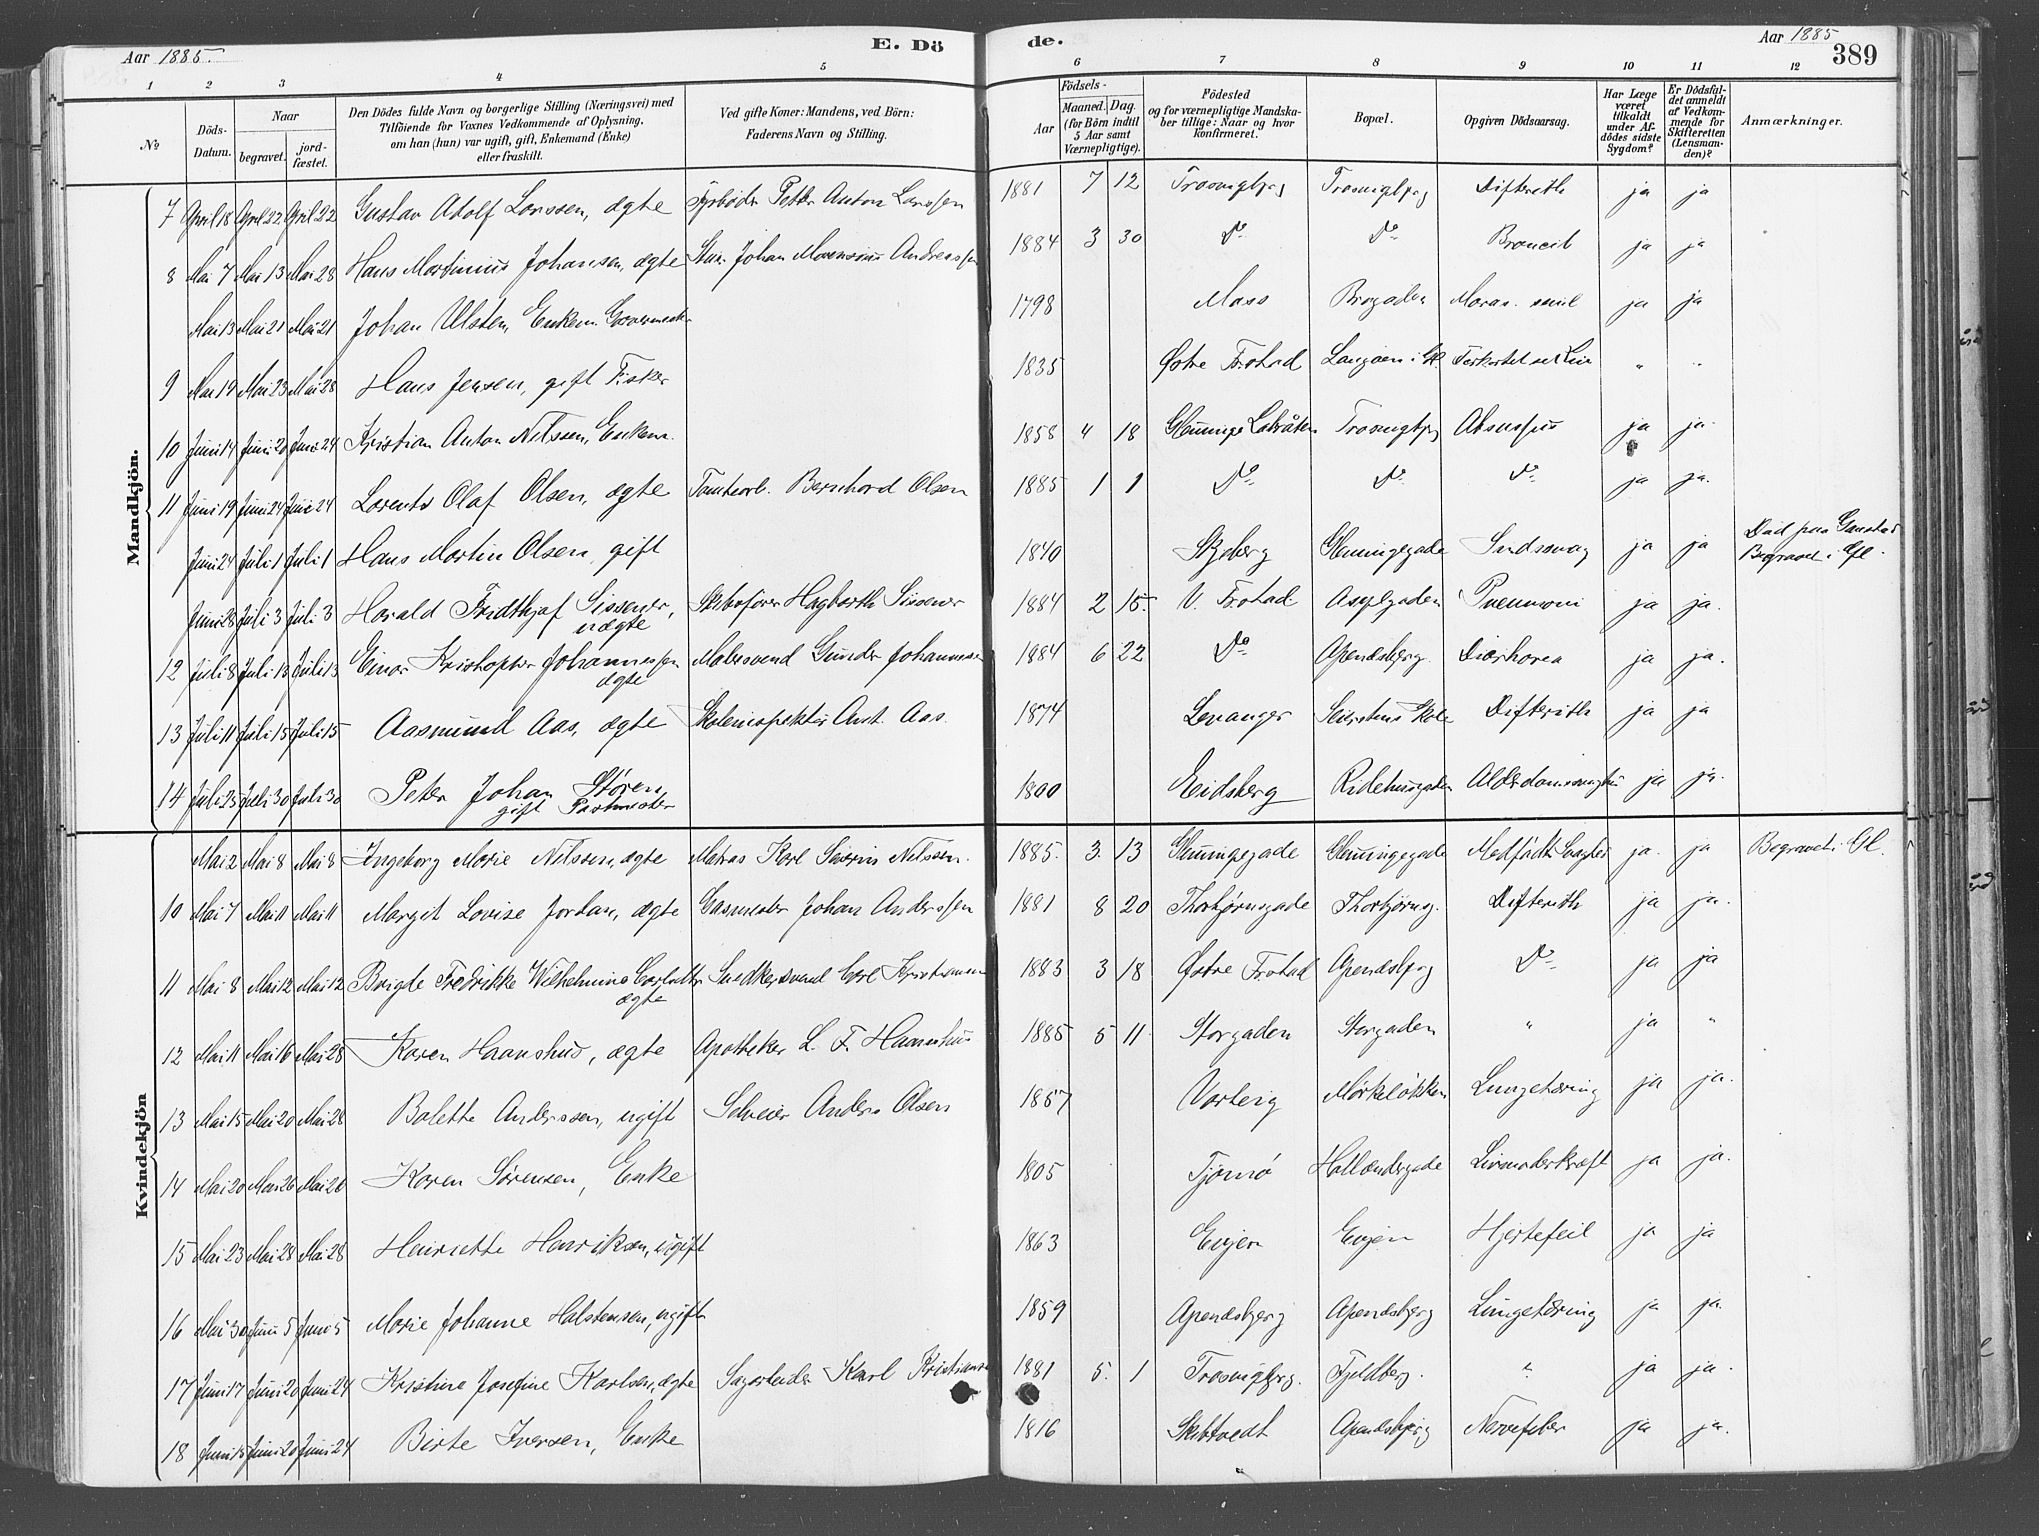 Aar 1885. E. Dö
de. Aar 1885 389
1 2 3 4 5 6 7 8 9 10 11 12
No
Döds-Datum.
Naar
begravet.
jordfæstet.
Den Dödes fulde Navn og borgerlige Stilling (Næringsvei) med
Tilföiende for Voxnes Vedkommende af Oplysning,
om han (hun) var ugift, gift, Enkemand (Enke)
eller fraskilt.
Ved gifte Koner: Mandens, ved Börn:
Faderens Navn og Stilling.
Födsels-
Aar
Maaned. Dag.
(for Börn indtil
5 Aar samt
Værnepligtige).
Födested
og for værnepligtige Mandskaber
tillige: Naar og hvor
konfirmeret.
Bopæl.
Opgiven Dödsaarsag.
Har Læge
været
tilkaldt
under Afdödes
sidste
Sygdom?
Er Dödsfaldet
anmeldt
af Vedkommende
for
Skifteretten
(Lensmanden)?
Anmærkninger.
Mandkjön.
7 April 18 April 22 April 22 Gustav Adolf Larssen, ægte Fyrbøder Petter Anton Larssen 1881 7 12 Trosvigbjg Trosvigbjg Difterith ja ja
8 Mai 7 Mai 13 Mai 28 Hans Martinius Johansen, ægte Johan Andreassen 1884 3 30 Do Do ja ja
Mai 13 Mai 21 Mai 21 Johan Ulsten, Enkem. 1798 Moss Brogaden ja ja
9 Mai 19 Mai 23 Mai 28 Hans Jensen, gift Fisker 1835 Østre " "
10 Juni 14 Juni 20 Juni 24 Kristian Anton Nilssen, Enkem. 1858 4 18 Glemmige Trosvigbjg ja ja
11 Juni 19 Juni 24 Juni 24 Lorents Olaf Olsen, ægte Tomtearb. Bernhard Olsen 1885 1 1 Do Do Do ja ja.
Juni 24 Juli 1 Juli 1 Hans Martin Olsen, gift 1840 Skjeberg Glemmigegade Sindssvag ja ja Død paa Gaustad
Begravet i Gl.
Juni 28 Juli 3 Juli 3 Harald Fridthjof Sissener, uægte Skibsfører Hagbarth Sissener 1884 2 15. V. Fr.stad. Asylgaden Pneumoni ja ja.
12 Juli 8 Juli 13 Juli 13 Einar Kristopher Johannessen ægte Malersvend Gunder Johannessen 1884 6 22 Do Apenæsbjerg. Diarhorea ja ja.
13 Juli 11 Juli 15 Juli 15 Aasmund Aas, ægte Skoleinspektør Ant. Aas. 1874 Levanger Difterith ja ja
14 Juli 25 Juli 30 Juli 30 Peter Johan Støren, gift Postmester 1800 Eidsberg Ridehusgaden ja ja.
Kvindekjön
Mai 2 Mai 8 Mai 8 Ingeborg Marie Nilssen, ægte Matros Karl Severin Nilssen. 1885. 3. 13 Glemmingegade Glemmingegade ja. ja Begravet i Gl.
10 Mai 7 Mai 11 Mai 11 Margit Lovise Jordan, ægte Gasmester Johan Anderssen 1881 8 20 Thorbjørnsgade Thorbjørnsg. Difterith ja ja.
11 Mai 8 Mai 12 Mai 12 Birgte Fredrikke Wilhelmine ægte Snedkersvend Carl Kristiansen 1883 3 18 Østre Fr.stad Apenæsbjrg Do ja ja
12 Mai 11 Mai 16 Mai 28 Karen Haanshus, ægte Apotheker L. F. Haanshus 1885 5 11 Storgaden Storgaden " ja "
13 Mai 15 Mai 20 Mai 28 Bolette Anderssen, ugift Selveier Anders Olsen 1857 Varteig Mørkeløkken Lungetæring ja ja.
14 Mai 20 Mai 26 Mai 28 Karen Sørensen, Enke 1805 Tjømø Hollændergade Livmoderkræft ja ja.
15 Mai 23 Mai 28 Mai 28 Henriette Henriksen, ugift 1863 Evjen Evjen Hjertefeil ja ja
16 Mai 30 Juni 5 Juni 5 Marie Johanne Halstensen, ugift 1859 Apenæsbjerg Apenæsbjerg Lungetæring ja ja.
17 Juni 17 Juni 20 Juni 24 Kristine Josefine Karlsen, ægte Sagarbeider Karl Kristiansen 1881 5. 1 Trosvigbjrg. Fjeldberg. " ja ja.
18 Juni 15 Juni 20 Juni 24 Birte Iversen, Enke 1816 Skibtvedt Apenæsbjerg Nervefeber ja ja.